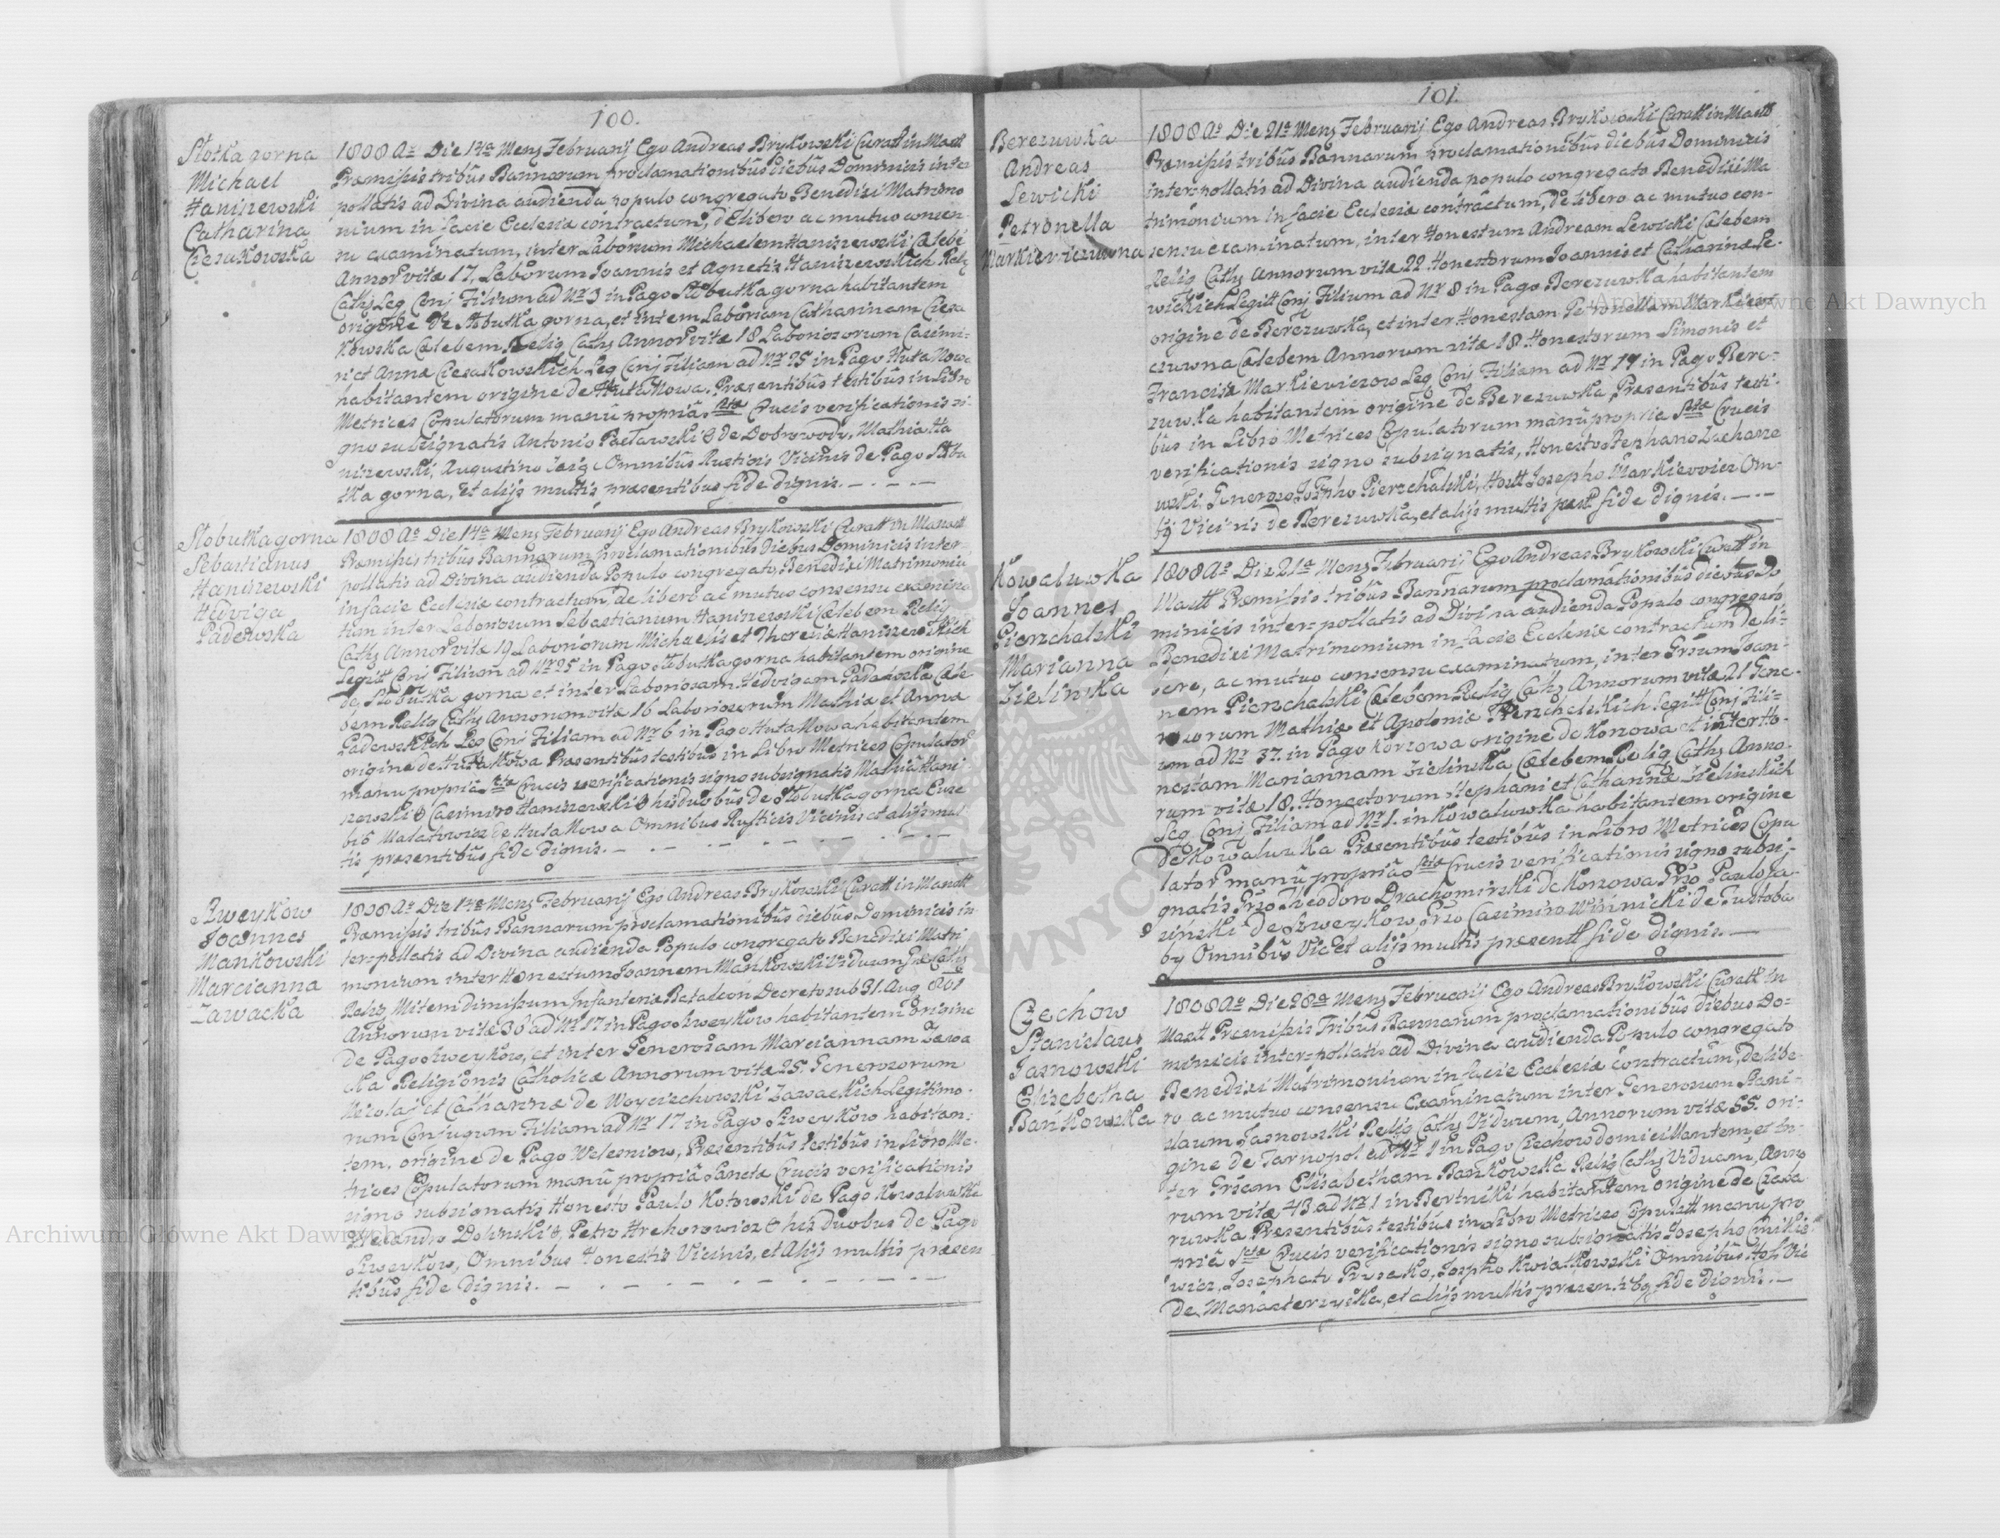 100.
Slotka gorna
Michael
Haniszewski
Catharina
Ciesakowska
1808 Ao Die 14ta Mens Februarij Ego Andreas Brykowski Curatt in Mastt
Præmissis tribus Bannarum proclamationibus Diebus Dominicis inter
pollatis ad Divina audienda populo congregato Benedixi Matrimo
nium in facie Ecclesiæ contractum, de libero ac mutuo consen-
su examinatum, inter Laboriosum Michaelem Haniszewski Cælebe
Annor vitæ 17, Laborum Joannis et Agnetis Haniszewskich Relig
Cath Leg Conj Filium ad Nr 3 in Pago Slobutka gorna habitantem
origine de Slobutka gorna, et inter Laboriam Catharinam Ciesa
kowska Cælebem Relig Cath Annor vitæ 18 Laboriosorum Casimi-
ri et Annæ Ciesakowskich Leg Conj Filiam ad Nr 25 in Pago Huta Nowa
habitantem origine de Huta Nowa. Præsentibus testibus in Libro
Metrices Copulatorum manu propria Stæ Crucis verificationis si-
gno subsignatis Antonio Pacławski de Dobrowody, Mathia Ha
niszewski, Augustino Omnibus Rusticis Vicinis de Pago Slobu
tka gorna, et alijs multis præsentibus fide dignis.
Slobutka gorna
Sebastianus
Haniszewski
Hedviga
Padewska
1808 Ao Die 14ta Mens Februarij Ego Andreas Brykowski Curatt in Manastt
Præmissis tribus Bannarum proclamationibus Diebus Dominicis inter
pollatis ad Divina audienda Populo congregato, Benedixi Matrimoniu
in facie Ecclesiæ contractum de libero ac mutuo consensu examina
tum inter Laboriosum Sebastianum Haniszewski Cælebem Relig
Cath Annor vitæ 19 Laboriorum Michaelis et Haniszewskich
Legitt Conj Filium ad Nr 25 in Pago Slobutka gorna habitantem origine
de Slobutka gorna et inter Laboriosam Hedvigam Padewska Cæle
bem Relig Cath Annorum vitæ 16 Laboriosorum Mathiæ et Annæ
Padewskich Leg Conj Filiam ad Nr 6 in Pago Huta Nowa habitantem
origine de Huta Nowa Præsentibus testibus in Libro Metrices Copulator
manu propria Stæ Crucis verificationis signo subsignatis Mathia Hani
szewski Casimiro Haniszewski his duobus de Slobutka gorna Euse
bio Malatowicz de Huta Nowa Omnibus Rusticis Vicinis et alijs mul
tis præsentibus fide dignis.
Zweykow
Joannes
Mankowski
Marcianna
Zawacka
1808 Ao Die 14ta Mens Februarij Ego Andreas Brykowski Curatt in Manastt
Præmissis tribus Bannarum proclamationibus diebus Dominicis in
terpollatis ad Divina audienda Populo congregato Benedixi Matri
monium inter Honestum Joannem Mankowski Viduum Græcath
Relig Militem dimissum Infanteriæ Bataleon Decreto sub 31. Aug 801
Annorum vitæ 36 ad Nr 17 in Pago Zweykow habitantem origine
de Pago Zweykow, et inter Generosam Marciannam Zawa
cka Religionis Catholicæ Annorum vitæ 25. Generosorum
Nicolaj et Catharinæ de Woyciechowski Zawackich Legitimo
rum Conjugum Filiam ad Nr 17 in Pago Zweykow habitan-
tem, origine de Pago Welesniow, Præsentibus testibus in Libro Me-
trices Copulatorum manu propria Sanctæ Crucis verificationis
signo subsignatis Honesto Paulo Kotowski de Pago Kowaluwka
Alexandro Dolinski, Petro Hrehorowicz his duobus de Pago
Zweykow, Omnibus Honestis Vicinis, et Alijs multis præsen
tibus fide dignis.
101.
Berezuwka
Andreas
Lewicki
Petronella
Markiewiczuwna
1808 Ao Die 21a Mens Februarij Ego Andreas Brykowski Curatt in Mastt
Præmissis tribus Bannarum proclamationibus diebus Dominicis
interpollatis ad Divina audienda populo congregato Benedixi Ma
trimonium in facie Ecclesiæ contractum, de libero ac mutuo con-
sensu examinatum, inter Honestum Andream Lewicki Cælebem
Relig Cath Annorum vitæ 22 Honestorum Joannis et Catharinæ Le-
wickich Legitt Conj Filium ad Nr 8 in Pago Berezuwka habitantem
origine de Berezuwka, et inter Honestam Petronellam Markiewi
czuwna Cælebem Annorum vitæ 18 Honestorum Simonis et
Franciscæ Markiewiczow Leg Conj Filiam ad Nr 19 in Pago Bere-
zuwka habitantem origine de Berezuwka Præsentibus testi-
bus in Libro Metrices Copulatorum manu propria Stæ Crucis
verificationis signo subsignatis, Honesto Stephano Zacharze
wski, Generoso Josepho Pierzchalski, Hostt Josepho Markiewicz Om-
Vicinis de Berezuwka, et alijs multis præst fide dignis.
Kowaluwka
Joannes
Pierzchalski
Marianna
Zielinska
1808 Ao Die 21a Mens Februarij Ego Andreas Brykowski Curatt in
Mastt Præmissis tribus Bannarum proclamationibus diebus Do
minicis interpollatis ad Divina audienda Populo congregato
Benedixi Matrimonium in facie Ecclesiæ contractum de li-
bere, ac mutuo consensu examinatum, inter Grsum Joan-
nem Pierzchalski Cælebem Relig Cath Annorum vitæ 21 Gene-
rosorum Mathiæ et Apoloniæ Pierzchalskich Legitt Conj Fili-
um ad Nr 37. in Pago Korzowa origine de Korzowa et inter Ho-
nestam Mariannam Zielinska Cælebem Relig Cath Anno-
rum vitæ 18. Honestorum Stephani et Catharinæ Zielinskich
Leg Conj Filiam ad Nr 1. in Kowaluwka habitantem origine
de Kowaluwka Præsentibus testibus in Libro Metrices Copu
lator manu propria Stæ Crucis verificationis signo subsi-
gnatis Grso Theodoro Drachomirski de Korzowa Grso Paulo Ja-
sinski de Zweykow, Grso Casimiro Winnicki de Tustoba
by Omnibus Vic et alijs multis præsentt fide dignis.
Czechow
Stanislaus
Jasnowski
Elisabetha
Bankowska
1808 Ao Die 28a Mens Februarij Ego Andreas Brykowski Curatt in
Mastt Præmissis Tribus Bannarum proclamationibus diebus Do-
minicis interpollatis ad Divina audienda Populo congregato
Benedixi Matrimonium in facie Ecclesiæ contractum, de libe-
ro ac mutuo consensu Examinatum inter Generosum Stani-
slaum Jasnowski Relig Cath Viduum, Annorum vitæ 55. ori-
gine de Tarnopol ad Nr 1 in Pago Czechow domicillantem, et in-
ter Grsam Elisabetham Bankowska Relig Cath Viduam, Anno
rum vitæ 43 ad Nr 1 in Bertniki habitantem origine de Czasa
ruwka Præsentibus testibus in Libro Metrices Copulatt manu pro
pria Stæ Crucis verificationis signo subsignatis Josepho
wicz, Josepho Kwiatkowski Omnibus Host Vic
de Manasterzyska, et alijs multis præsen. fide dignis.
Archiwum Główne Akt Dawnych
Archiwum Główne Akt Dawnych